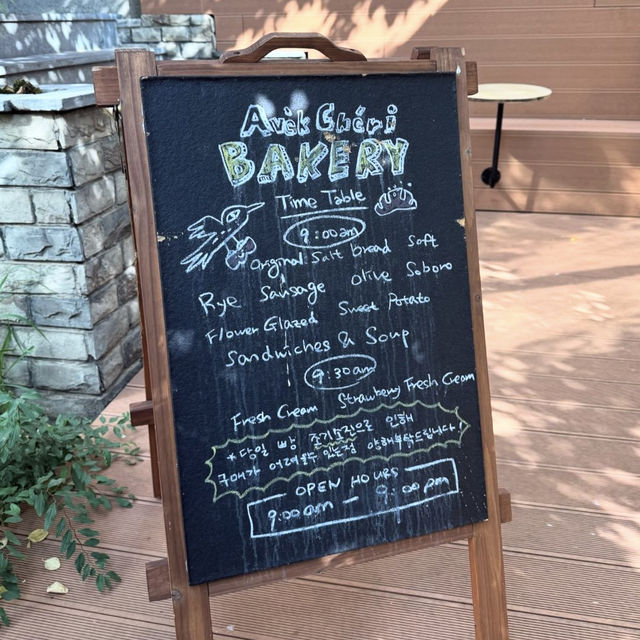 Avèk Chéri
BAKERY
Time Table
9:00am
Original Salt bread Soft
Rye Sausage Olive Soboro
Flower Glazed Sweet Potato
Sandwiches & Soup
9:30am
Fresh Cream Strawberry Fresh Cream
*당일 빵 조기소진으로 인해
구매가 어려울수 있는점 양해부탁드립니다!
OPEN HOURS
9:00am - 9:00pm